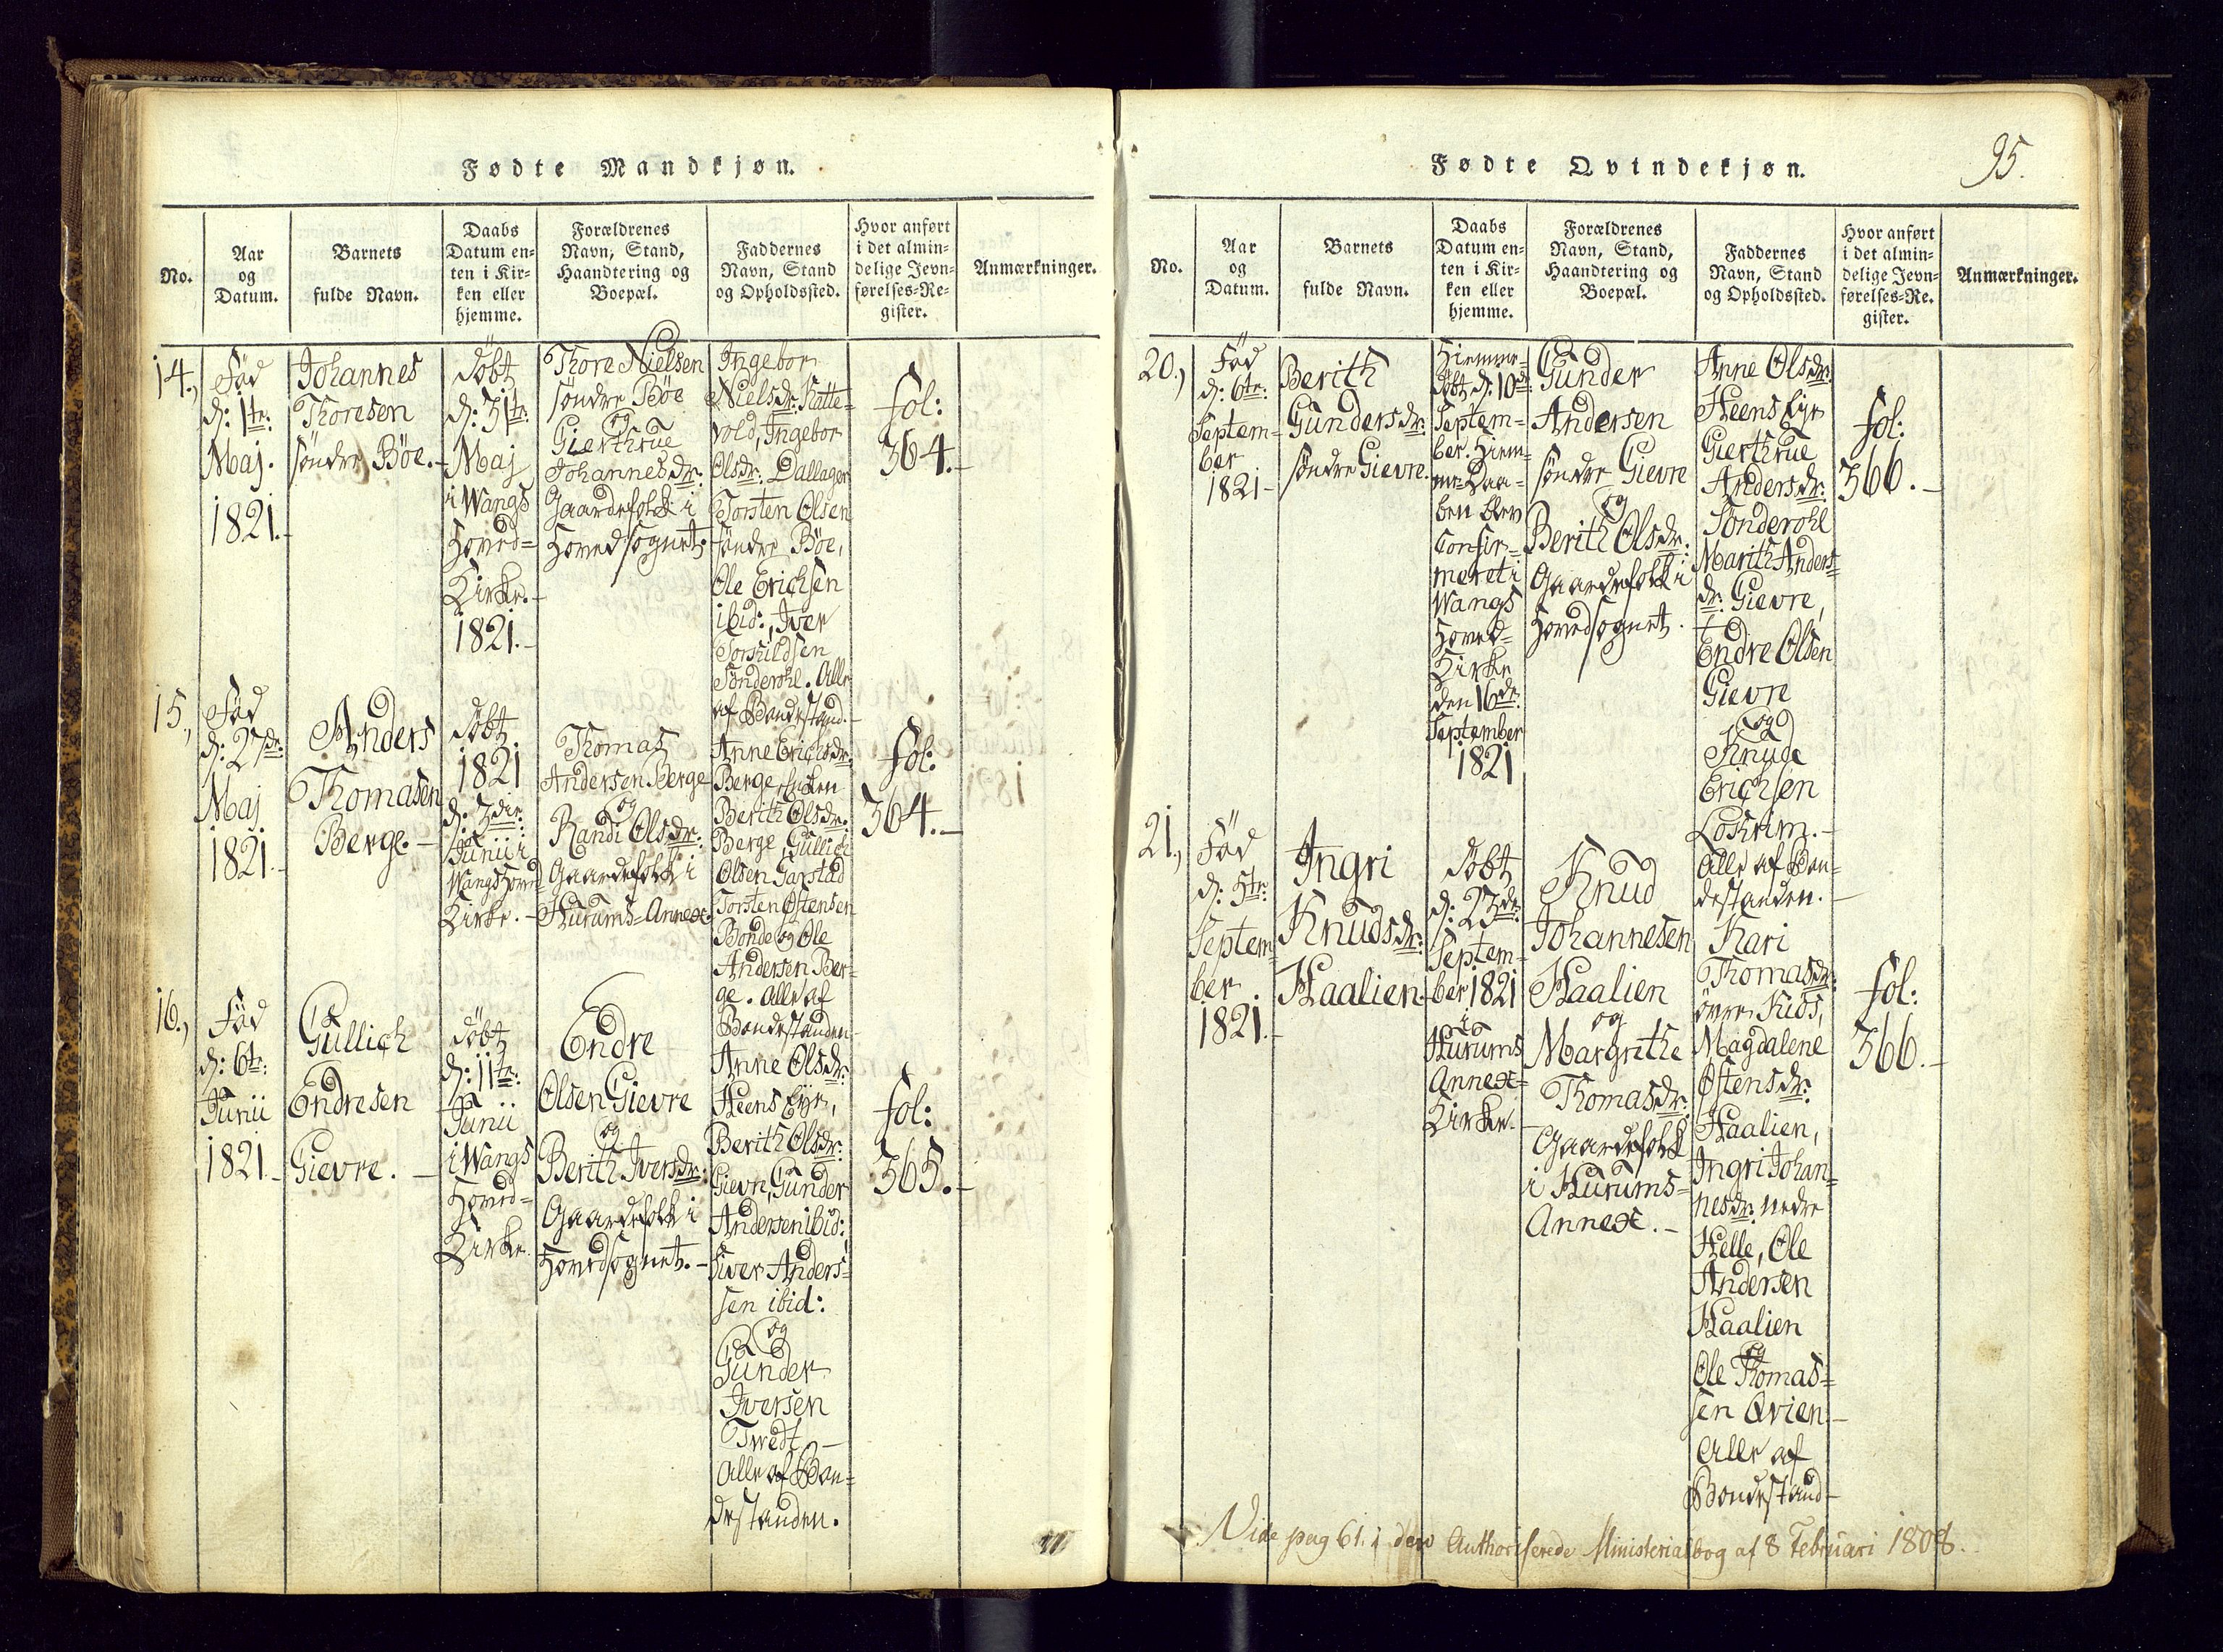 Fødte Mandkjøn.
No.
Aar
og
Datum.
Barnets
fulde Navn.
Daabs
Datum en-
ten i Kir-
ken eller
hjemme.
Forældrenes
Navn, Stand,
Haandtering og
Boepæl.
Faddernes
Navn, Stand
og Opholdssted.
Hvor anført
i det almin-
delige Jevn-
førelses-Re-
gister.
Anmærkninger.
14.,
Föd
d: 1te:
Maj.
1821.-
Johannes
Thoresen
søndre Böe.-
döbt
d: 31te:
Maj
i Wangs
Hoved=
Kirke.-
1821.-
Thore Nielsen
søndre Böe
og
Gierthrue
Johannesdr:
Gaardefolk i
Hovedsognet.
Ingebor
Nielsdr: Katte=
vold, Ingebor
Olsdr: Dallager
Torsten Olsen
søndre Böe,
Ole Erichsen
ibid:, Iver
Torkildsen
Sönderohl. Alle
af Bondestand.-
fol:
364.-
15.,
Föd
d: 27de:
Maj
1821.-
Anders
Thomasen
Berge.-
döbt
1821
d: 3die:
Junii i
Wangs Hoved
Kirke.-
Thomas
Andersen Berge
og
Randi Olsdr:
Gaardefolk i
Hurums=Annex.
Anne Erichsdr:
Berge Enken
Berith Olsdr:
Berge, Gullich
Olsen Garstad
Torsten Østensen
Bonde og Ole
Andersen Ber=
ge. Alle af
Bondestanden-
fol:
364.-
16.,
Föd
d: 6te:
Junii
1821.-
Gullich
Endresen
Gievre.-
döbt
d: 11te:
Junii
i Wangs
Hoved=
Kirke.
Endre
Olsen Gievre
og
Berith Iversdr:
Gaardefolk i
Hovedsognet.-
Anne Olsdr:
Heens Eje,
Berith Olsdr:
Gievre, Gunder
Andersen ibid:,
Siver Anders=
sen ibid:
og
Gunder
Iversen
Twedt -
Alle af Bon=
destanden.
fol:
365.-
95.
Fødte Qvindekjøn.
No.
Aar
og
Datum.
Barnets
fulde Navn.
Daabs
Datum en-
ten i Kir-
ken eller
hjemme.
Forældrenes
Navn, Stand,
Haandtering og
Boepæl.
Faddernes
Navn, Stand
og Opholdssted.
Hvor anført
i det almin-
delige Jevn-
førelses-Re-
gister.
Anmærkninger.
20.,
Föd
d: 6te:
Septem=
ber
1821-
Berith
Gundersdr:
søndre Gievre.
Hiemme=
döbt d: 10de:
Septem=
ber. Hiem=
me=Daa=
ben blev
Confir=
meret i
Wangs
Hoved=
Kirke
den 16de:
September
1821
Gunder
Andersen
søndre Gievre
og
Berith Olsdr:
Gaardefolk i
Hovedsognet.
Anne Olsdr:
Heens Eje
Gierthrue
Andersdr:
Sönderohl
Marith Anders=
dr: Gievre,
Endre Olsen
Gievre
og
Knud
Erichsen
Lokrim.-
Alle af Bon=
destanden.-
fol:
366.-
21.,
Föd
d: 5te:
Septem=
ber
1821.-
Ingri
Knudsdr:
Haalien.
döbt
d: 23de:
Septem=
ber 1821
i
Hurums
Annex=
Kirke.-
Knud
Johannesen
Haalien
og
Margrethe
Thomasdr:
Gaardefolk
i Hurums=
Annex.-
Kari
Thomasdr:
övre Kids,
Magdalene
Østensdr:
Haalien,
Ingri Johan=
nesdr: nedre
Helle, Ole
Andersen
Haalien
og
Ole Thomas=
sen Qvien.-
Alle af
Bondestand-
fol:
366.-
Vide pag 61. i den Authoriserede Ministerialbog af 8 Februari 1808.